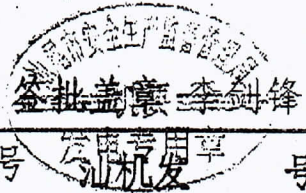 市安全生产监督管理局
签批盖章 李剑锋
发电专用章
号 汕机发 号